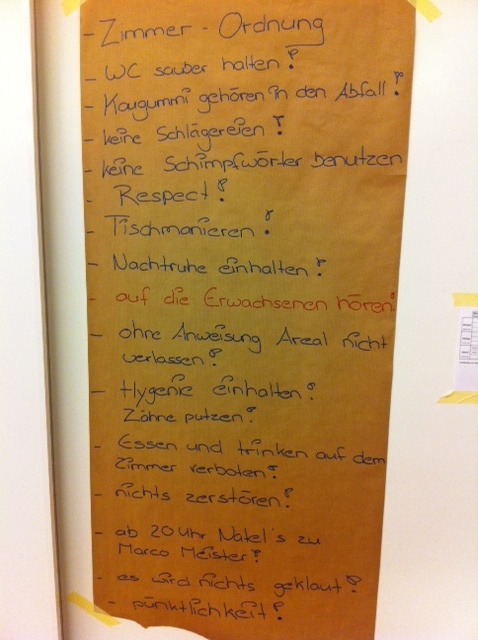 - Zimmer - Ordnung
- WC sauber halten!
- Kaugummi gehören in den Abfall!
- keine Schlägereien!
- keine Schimpfwörter benutzen
- Respect!
- Tischmanieren!
- Nachtruhe einhalten!
- auf die Erwachsenen hören!
- ohne Anweisung Areal nicht
verlassen!
- Hygenie einhalten!
Zähne putzen!
- Essen und trinken auf dem
Zimmer verboten!
- nichts zerstören!
- ab 20 Uhr Natel's zu
Marco Meister!
- es wird nichts geklaut!
- pünktlichkeit!